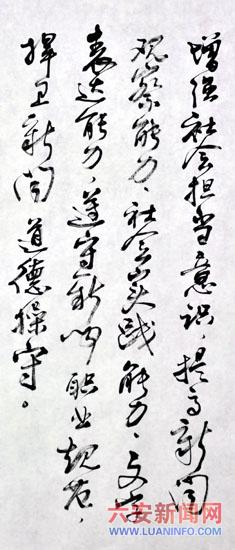 增强社会担当意识，提高新闻
观察能力、社会实践能力、文字
表达能力，遵守新闻职业规范，
捍卫新闻道德操守。
六安新闻网
WWW.LUANINFO.COM